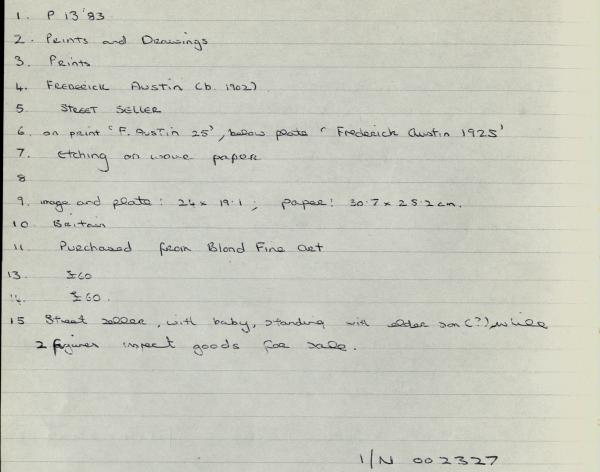 1. P 13'83
2. Prints and Drawings
3. Prints
4. FREDERICK AUSTIN (b. 1902)
5 STREET SELLER
6. on print 'F. AUSTIN 25', below plate 'Frederick Austin 1925'
7. Etching on wove paper
8
9. image and plate: 24 x 19.1 ; paper: 30.7 x 25.2 cm.
10. Britain
11. Purchased from Blond Fine Art
13. £60
14. £60.
15 Street seller, with baby, standing with elder son (?), while
2 figures inspect goods for sale.
I/N 002327